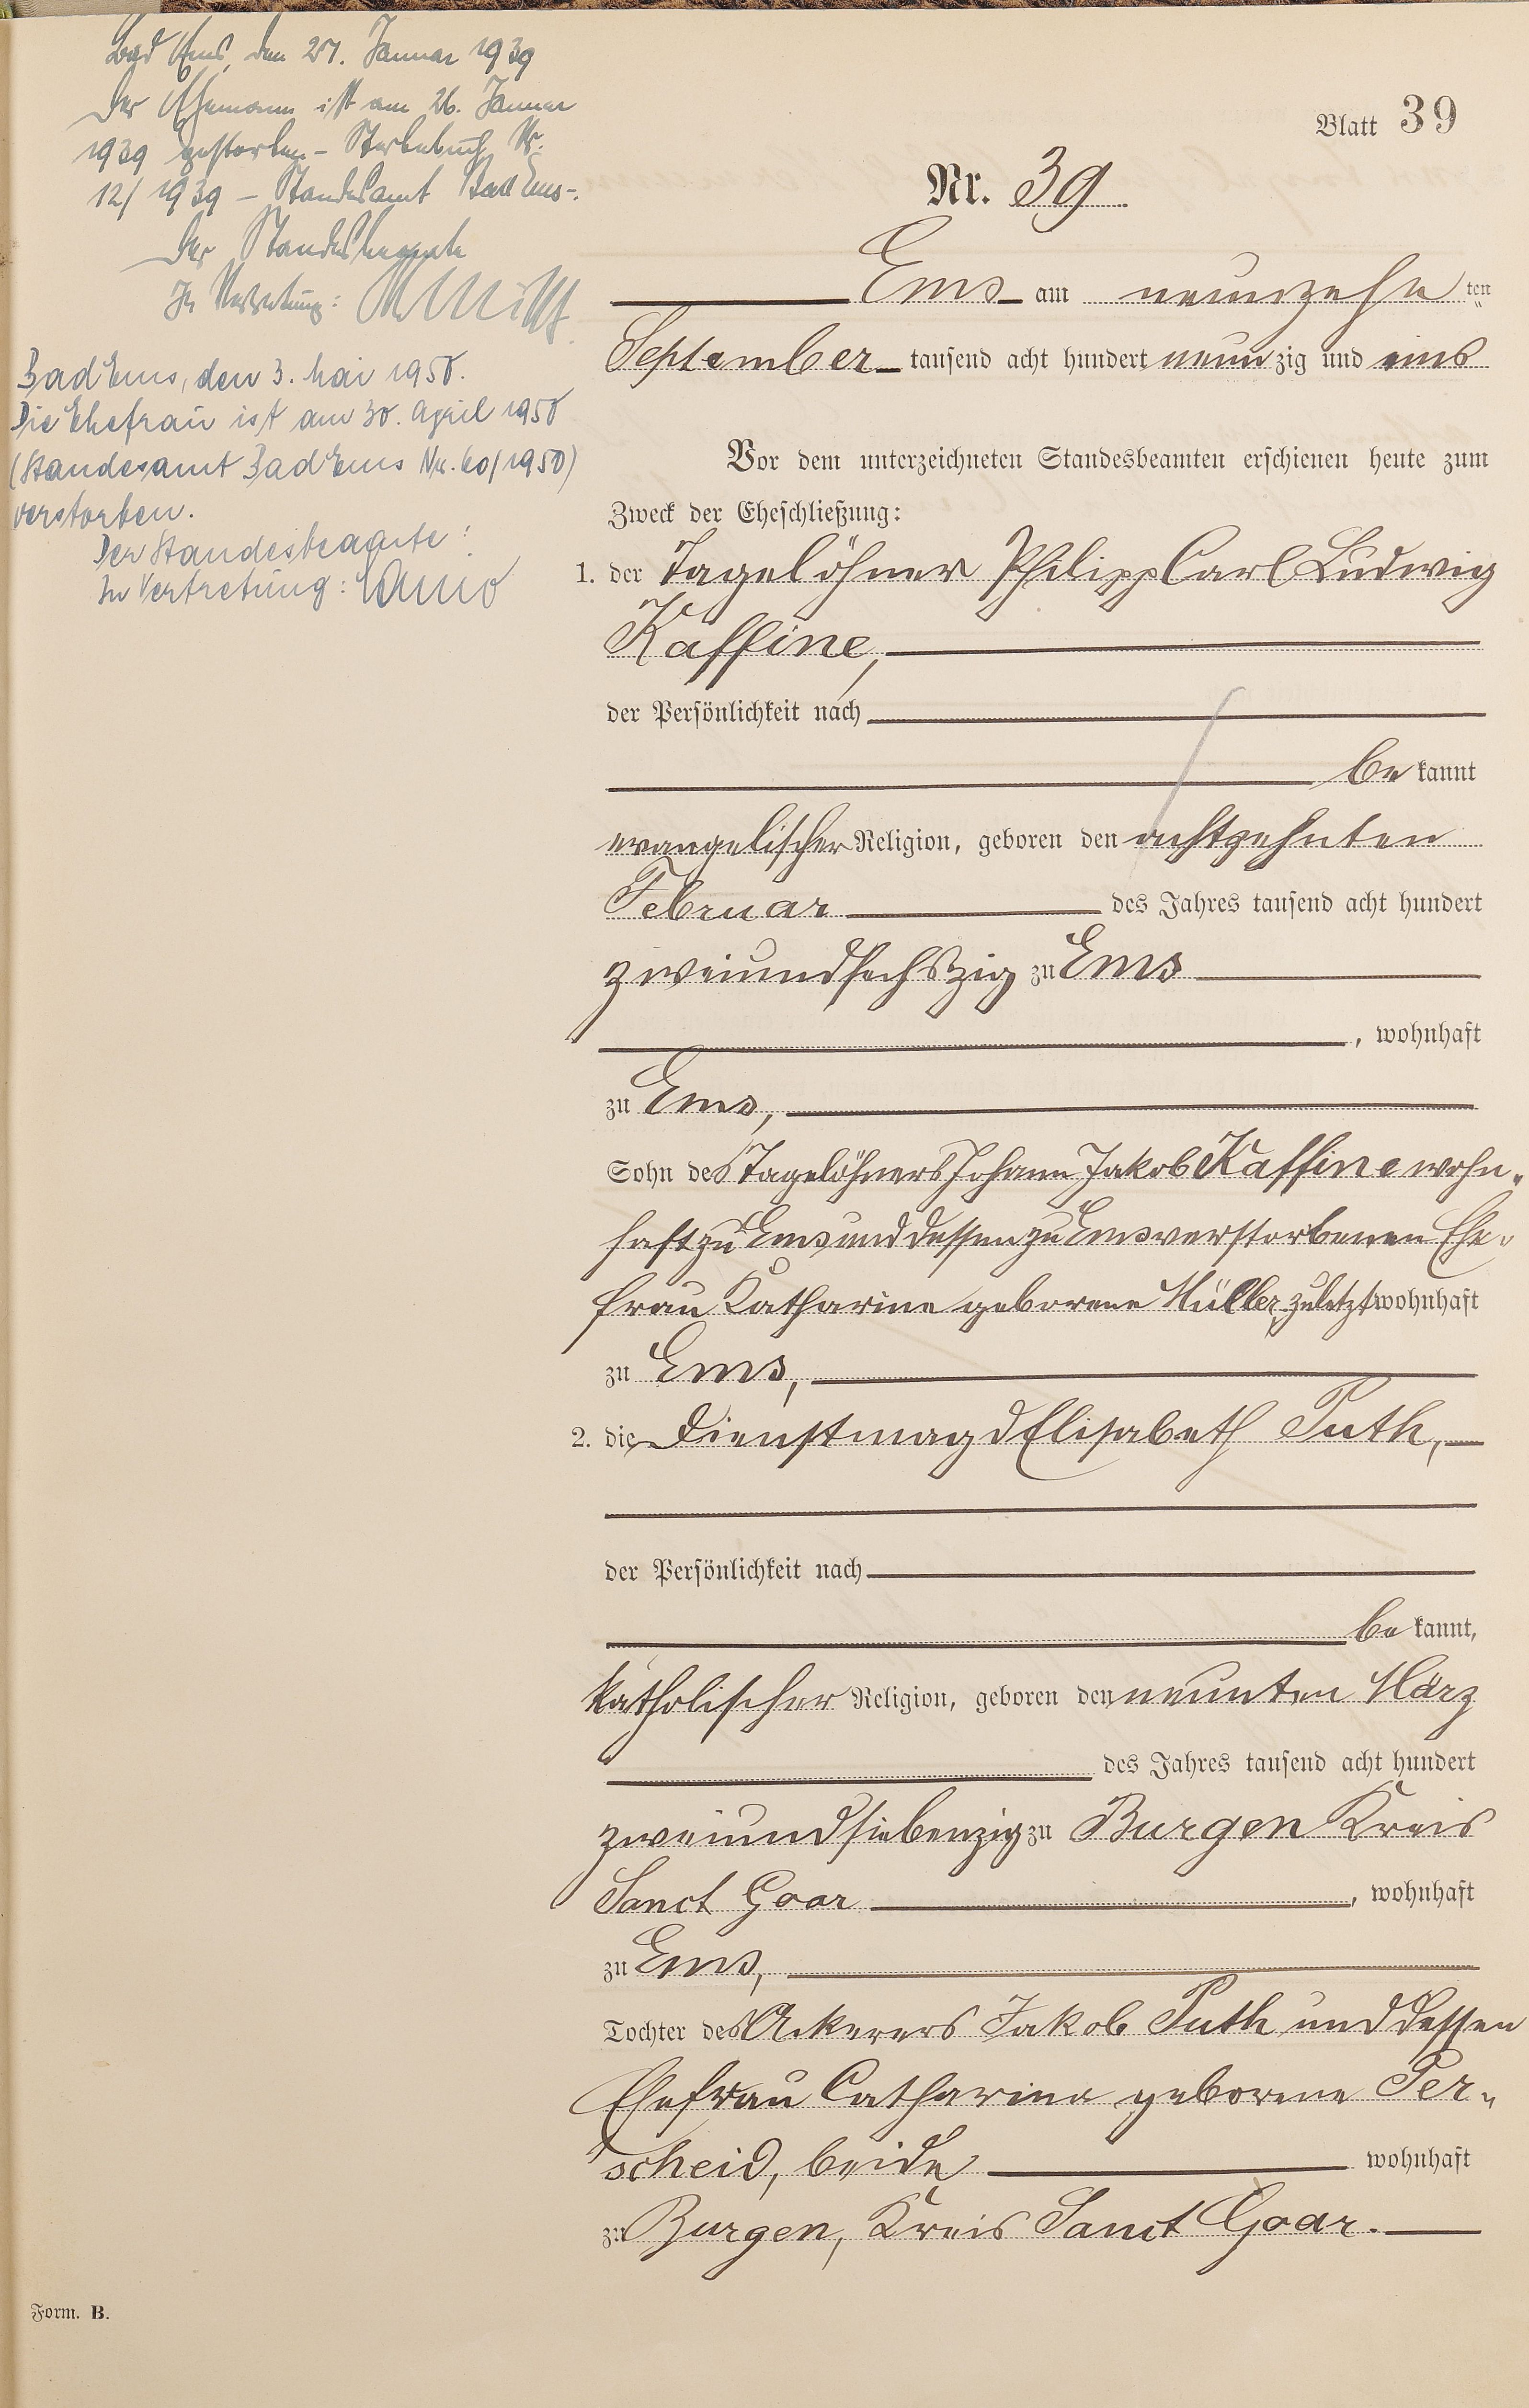 Bad Ems, den 27. Januar 1939
Der Ehemann ist am 26. Januar
1939 gestorben – Sterbebuch Nr.
12/1939 – Standesamt Bad Ems –.
Der Standesbeamte
In Vertretung:
Bad Ems, den 3. Mai 1950.
Die Ehefrau ist am 30. April 1950
(Standesamt Bad Ems Nr. 60/1950)
verstorben.
Der Standesbeamte:
In Vertretung:
Blatt 39
Nr. 39
Ems am neunzehn ten
September tausend acht hundert neunzig und eins
Vor dem unterzeichneten Standesbeamten erschienen heute zum
Zweck der Eheschließung:
1. der Tagelöhner Philipp Carl Ludwig
Kaffine,
der Persönlichkeit nach
be kannt
evangelischer Religion, geboren den achtzehnten
Februar des Jahres tausend acht hundert
zweiundsechszig zu Ems
, wohnhaft
zu Ems,
Sohn des Tagelöhners Johann Jakob Kaffine wohn-
haft zu Ems und dessen zu Ems verstorbenen Ehe-
frau Katharine geborene Müller, zuletzt wohnhaft
zu Ems,
2. die Dienstmagd Elisabeth Puth,
der Persönlichkeit nach
be kannt,
katholischer Religion, geboren den neunten März
des Jahres tausend acht hundert
zweiundsiebenzig zu Burgen Kreis
Sanct Goar , wohnhaft
zu Ems,
Tochter des Ackerers Jakob Puth und dessen
Ehefrau Catharina geborene Per-
scheid, beide wohnhaft
zu Burgen, Kreis Sanct Goar.
Form. B.